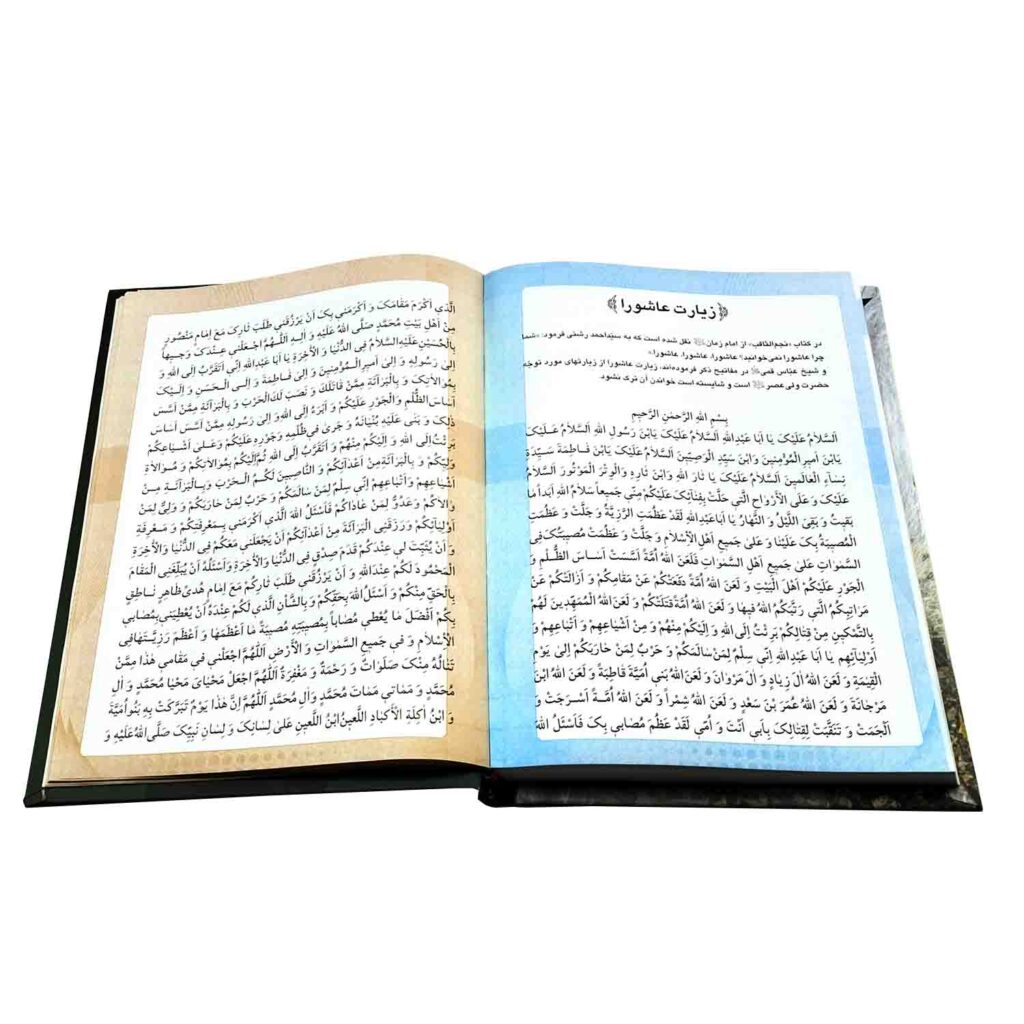 زیارت عاشورا
در کتاب «نجم‌الثاقب» از امام زمان نقل شده است که به سیّداحمد رشتی فرمود: «شما
چرا عاشورا نمی‌خوانید؟ عاشورا، عاشورا، عاشورا.»
و شیخ عبّاس قمی در مفاتیح ذکر فرموده‌اند، زیارت عاشورا از زیارتهای مورد توجه
حضرت ولی‌عصر است و شایسته است خواندن آن ترک نشود.
بِسْمِ اللهِ الرَّحْمنِ الرَّحیمِ
اَلسَّلاٰمُ عَلَیْکَ یٰا اَبٰا عَبْدِاللهِ اَلسَّلاٰمُ عَلَیْکَ یَابْنَ رَسُولِ اللهِ اَلسَّلاٰمُ عَلَیْکَ
یَابْنَ اَمیرِ الْمُؤْمِنینَ وَابْنَ سَیِّدِ الْوَصِیّینَ اَلسَّلاٰمُ عَلَیْکَ یَابْنَ فٰاطِمَةَ سَیِّدَةِ
نِسٰاءِ الْعٰالَمینَ اَلسَّلاٰمُ عَلَیْکَ یٰا ثٰارَ اللهِ وَابْنَ ثٰارِهِ وَالْوِتْرَ الْمَوْتُورَ اَلسَّلاٰمُ
عَلَیْکَ وَ عَلَی الْاَرْوٰاحِ الَّتی حَلَّتْ بِفِنٰائِکَ عَلَیْکُمْ مِنّی جَمیعاً سَلاٰمُ اللهِ اَبَداً مٰا
بَقیتُ وَ بَقِیَ اللَّیْلُ وَ النَّهٰارُ یٰا اَبٰاعَبْدِاللهِ لَقَدْ عَظُمَتِ الرَّزِیَّةُ وَ جَلَّتْ وَ عَظُمَتِ
الْمُصیبَةُ بِکَ عَلَیْنٰا وَ عَلیٰ جَمیعِ اَهْلِ الْاِسْلاٰمِ وَ جَلَّتْ وَ عَظُمَتْ مُصیبَتُکَ فِی
السَّمٰوٰاتِ عَلیٰ جَمیعِ اَهْلِ السَّمٰوٰاتِ فَلَعَنَ اللهُ اُمَّةً اَسَّسَتْ اَسٰاسَ الظُّلْمِ وَ
الْجَوْرِ عَلَیْکُمْ اَهْلَ الْبَیْتِ وَ لَعَنَ اللهُ اُمَّةً دَفَعَتْکُمْ عَنْ مَقٰامِکُمْ وَ اَزٰالَتْکُمْ عَنْ
مَرٰاتِبِکُمُ الَّتی رَتَّبَکُمُ اللهُ فیهٰا وَ لَعَنَ اللهُ اُمَّةً قَتَلَتْکُمْ وَ لَعَنَ اللهُ الْمُمَهِّدینَ لَهُمْ
بِالتَّمْکینِ مِنْ قِتٰالِکُمْ بَرِئْتُ اِلَی اللهِ وَ اِلَیْکُمْ مِنْهُمْ وَ مِنْ اَشْیٰاعِهِمْ وَ اَتْبٰاعِهِمْ وَ
اَوْلِیٰائِهِم یٰا اَبٰا عَبْدِاللهِ اِنّی سِلْمٌ لِمَنْ سٰالَمَکُمْ وَ حَرْبٌ لِمَنْ حٰارَبَکُمْ اِلیٰ یَوْمِ
الْقِیٰمَةِ وَ لَعَنَ اللهُ اٰلَ زِیٰادٍ وَ اٰلَ مَرْوٰانَ وَ لَعَنَ اللهُ بَنی اُمَیَّةَ قٰاطِبَةً وَ لَعَنَ اللهُ ابْنَ
مَرْجٰانَةَ وَ لَعَنَ اللهُ عُمَرَ بْنَ سَعْدٍ وَ لَعَنَ اللهُ شِمْراً وَ لَعَنَ اللهُ اُمَّةً اَسْرَجَتْ وَ
اَلْجَمَتْ وَ تَنَقَّبَتْ لِقِتٰالِکَ بِاَبی اَنْتَ وَ اُمّی لَقَدْ عَظُمَ مُصٰابی بِکَ فَاَسْئَلُ اللهَ
الَّذی اَکْرَمَ مَقٰامَکَ وَ اَکْرَمَنی بِکَ اَنْ یَرْزُقَنی طَلَبَ ثٰارِکَ مَعَ اِمٰامٍ مَنْصُورٍ
مِنْ اَهْلِ بَیْتِ مُحَمَّدٍ صَلَّی اللهُ عَلَیْهِ وَ اٰلِهِ اَللّٰهُمَّ اجْعَلْنی عِنْدَکَ وَجیهاً
بِالْحُسَیْنِ عَلَیْهِ السَّلاٰمُ فِی الدُّنْیٰا وَ الْاٰخِرَةِ یٰا اَبٰا عَبْدِاللهِ اِنّی اَتَقَرَّبُ اِلَی اللهِ وَ
اِلیٰ رَسُولِهِ وَ اِلیٰ اَمیرِالْمُؤْمِنینَ وَ اِلیٰ فٰاطِمَةَ وَ اِلَی الْحَسَنِ وَ اِلَیْکَ
بِمُوٰالاٰتِکَ وَ بِالْبَرٰائَةِ مِمَّنْ قٰاتَلَکَ وَ نَصَبَ لَکَ الْحَرْبَ وَ بِالْبَرٰائَةِ مِمَّنْ اَسَّسَ
اَسٰاسَ الظُّلْمِ وَ الْجَوْرِ عَلَیْکُمْ وَ اَبْرَءُ اِلَی اللهِ وَ اِلیٰ رَسُولِهِ مِمَّنْ اَسَّسَ اَسٰاسَ
ذٰلِکَ وَ بَنیٰ عَلَیْهِ بُنْیٰانَهُ وَ جَریٰ فی ظُلْمِهِ وَ جَوْرِهِ عَلَیْکُمْ وَ عَلیٰ اَشْیٰاعِکُمْ
بَرِئْتُ اِلَی اللهِ وَ اِلَیْکُمْ مِنْهُمْ وَ اَتَقَرَّبُ اِلَی اللهِ ثُمَّ اِلَیْکُمْ بِمُوٰالاٰتِکُمْ وَ مُوٰالاٰةِ
وَلِیِّکُمْ وَ بِالْبَرٰائَةِ مِنْ اَعْدٰائِکُمْ وَ النّٰاصِبینَ لَکُمُ الْحَرْبَ وَ بِالْبَرٰائَةِ مِنْ
اَشْیٰاعِهِمْ وَ اَتْبٰاعِهِمْ اِنّی سِلْمٌ لِمَنْ سٰالَمَکُمْ وَ حَرْبٌ لِمَنْ حٰارَبَکُمْ وَ وَلِیٌّ لِمَنْ
وٰالاٰکُمْ وَ عَدُوٌّ لِمَنْ عٰادٰاکُمْ فَاَسْئَلُ اللهَ الَّذی اَکْرَمَنی بِمَعْرِفَتِکُمْ وَ مَعْرِفَةِ
اَوْلِیٰائِکُمْ وَ رَزَقَنِی الْبَرٰائَةَ مِنْ اَعْدٰائِکُمْ اَنْ یَجْعَلَنی مَعَکُمْ فِی الدُّنْیٰا وَ الْاٰخِرَةِ
وَ اَنْ یُثَبِّتَ لی عِنْدَکُمْ قَدَمَ صِدْقٍ فِی الدُّنْیٰا وَ الْاٰخِرَةِ وَ اَسْئَلُهُ اَنْ یُبَلِّغَنِی الْمَقٰامَ
الْمَحْمُودَ لَکُمْ عِنْدَاللهِ وَ اَنْ یَرْزُقَنی طَلَبَ ثٰارِکُمْ مَعَ اِمٰامٍ هُدیً ظٰاهِرٍ نٰاطِقٍ
بِالْحَقِّ مِنْکُمْ وَ اَسْئَلُ اللهَ بِحَقِّکُمْ وَ بِالشَّأْنِ الَّذی لَکُمْ عِنْدَهُ اَنْ یُعْطِیَنی بِمُصٰابی
بِکُمْ اَفْضَلَ مٰا یُعْطی مُصٰاباً بِمُصیبَتِهِ مُصیبَةً مٰا اَعْظَمَهٰا وَ اَعْظَمَ رَزِیَّتَهٰا فِی
الْاِسْلاٰمِ وَ فی جَمیعِ السَّمٰوٰاتِ وَ الْاَرْضِ اَللّٰهُمَّ اجْعَلْنی فی مَقٰامی هٰذٰا مِمَّنْ
تَنٰالُهُ مِنْکَ صَلَوٰاتٌ وَ رَحْمَةٌ وَ مَغْفِرَةٌ اَللّٰهُمَّ اجْعَلْ مَحْیٰایَ مَحْیٰا مُحَمَّدٍ وَ اٰلِ
مُحَمَّدٍ وَ مَمٰاتی مَمٰاتَ مُحَمَّدٍ وَ اٰلِ مُحَمَّدٍ اَللّٰهُمَّ اِنَّ هٰذٰا یَوْمٌ تَبَرَّکَتْ بِهِ بَنُو اُمَیَّةَ
وَ ابْنُ اٰکِلَةِ الْاَکْبٰادِ اللَّعینُ ابْنُ اللَّعینِ عَلیٰ لِسٰانِکَ وَ لِسٰانِ نَبِیِّکَ صَلَّی اللهُ عَلَیْهِ وَ